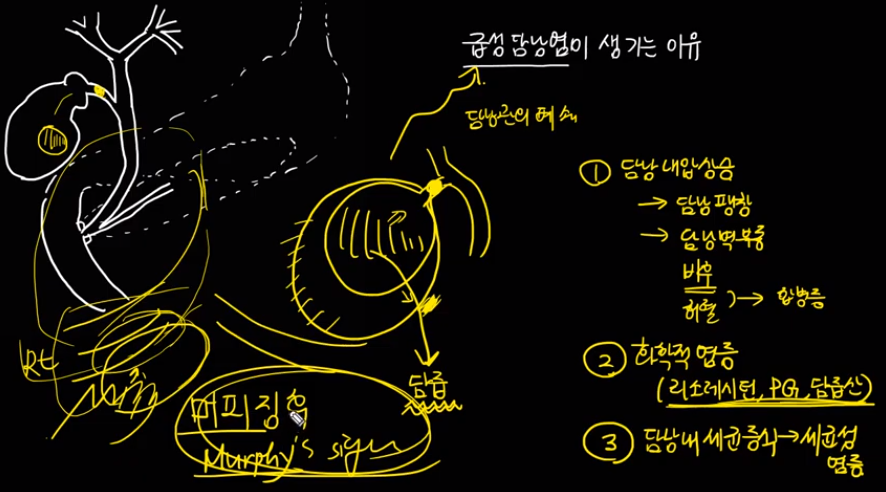 급성 담낭염이 생기는 이유
담낭관의 폐쇄
① 담낭 내압 상승
→ 담낭 팽창
→ 담낭벽 부종
허혈 → 합병증
② 화학적 염증
(리소레시틴, PG, 담즙산)
③ 담낭 내 세균증식 → 세균성
염증
담즙
Rt
머피징후
Murphy's sign